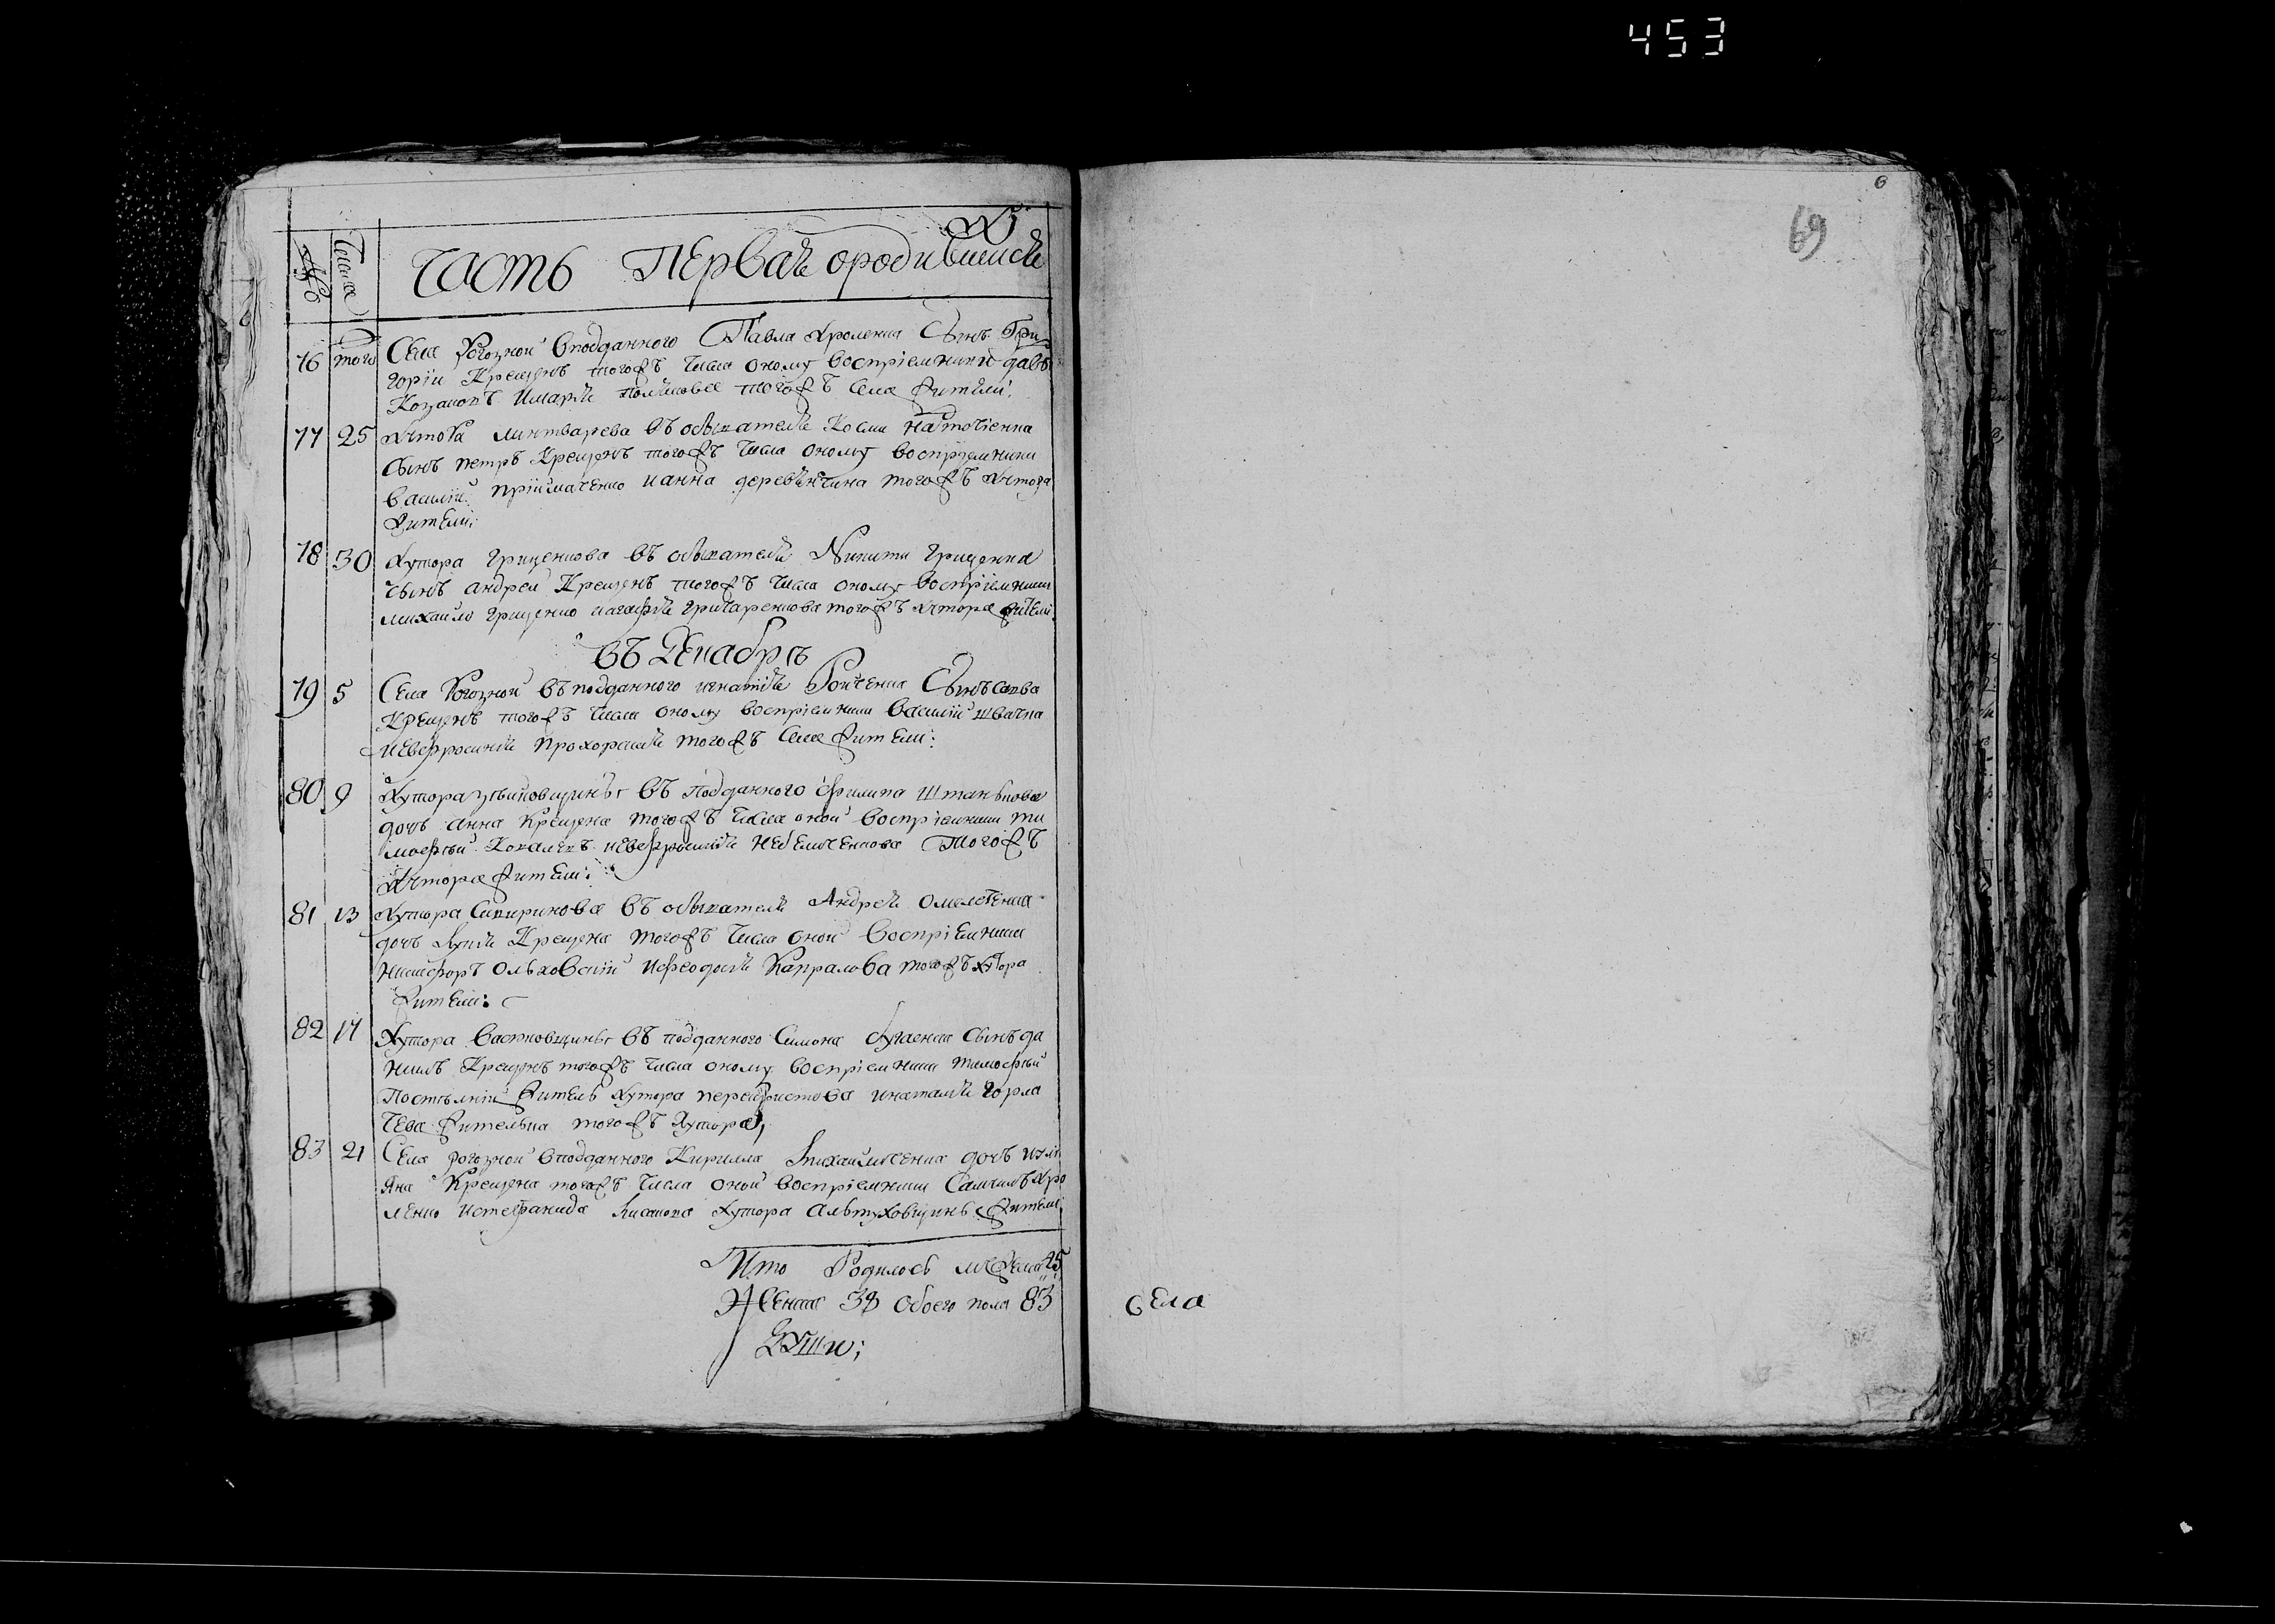 453
69
№ Числа Часть Первая ородившися
76 того Села Рогозной вподданного Павла Хроленка Сынъ Гри
горіи Крещенъ тогожъ числа оному воспріемники
Козаковъ тогожъ села жители:
77 25 хутора линтварева въ обывателя Косми
сынъ петръ Крещенъ тогожъ числа оному воспріемники
василіи пріймаченко ианна деревянчина тогожъ хутора
жители:
78 30 хутора гриценкова въ обывателя Никити гриценка
сынъ андреи Крещенъ тогожъ числа оному воспріемники
михаило гриценко иагафія гричаренкова тогожъ хутора жители:
въ Декабрѣ
79 5 Села Рогозной въ подданного игнатія Сынъ савва
Крещенъ тогожъ числа оному воспріемники василіи швачка
иевфросинія тогожъ села жители:
80 9 Хутора въ подданного филипа штанкова
дочь анна Крещена тогожъ числа оной воспріемники ти
мофѣй иевфросинія тогожъ
хутора жители:
81 13 хутора въ обывателя Андрея омелченка
дочь Крещена тогожъ числа оной воспріемники
никифоръ ольховскіи ифеодосія Капралова тогожъ хутора
жители:
82 17 Хутора въ подданного Симона сынъ да
нилъ Крещенъ тогожъ числа оному воспріемники тимофѣй
Постольніи житель хутора инаталія горла
чева жителька тогожъ хутора,
83 21 Села рогозной вподданного Кирилла михайличенка дочь
яна Крещена тогожъ числа оной воспріемники Самуилъ хро
ленко истефанида хутора алтуховщины жители
Итого Родилось 45
женска 38 обоего пола 83
души;
села